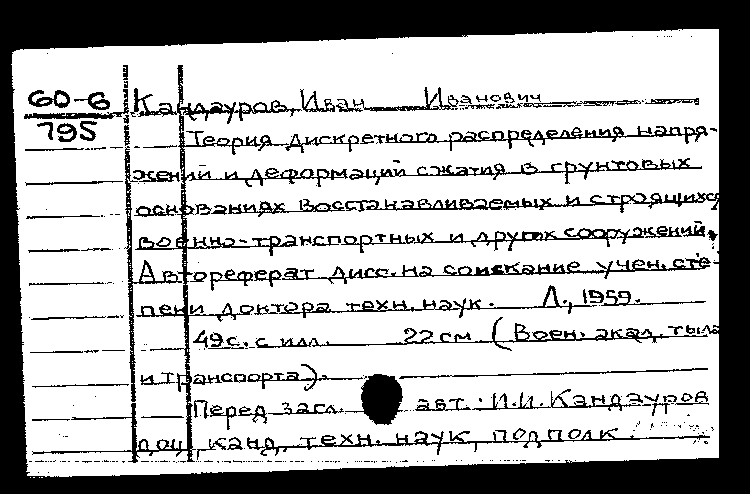 60-6
795
Кандауров, Иван Иванович
Теория дискретного распределения напря-
жений и деформаций сжатия в грунтовых
основаниях восстанавливаемых и строящихся
военно-транспортных и других сооружений.
Автореферат дисс. на соискание учен. сте-
пени доктора техн. наук. Л., 1959.
49 с. с илл. 22 см. (Воен. акад. тыла
и транспорта).
Перед загл. авт.: И.И. Кандауров
доц., канд. техн. наук, подполк.